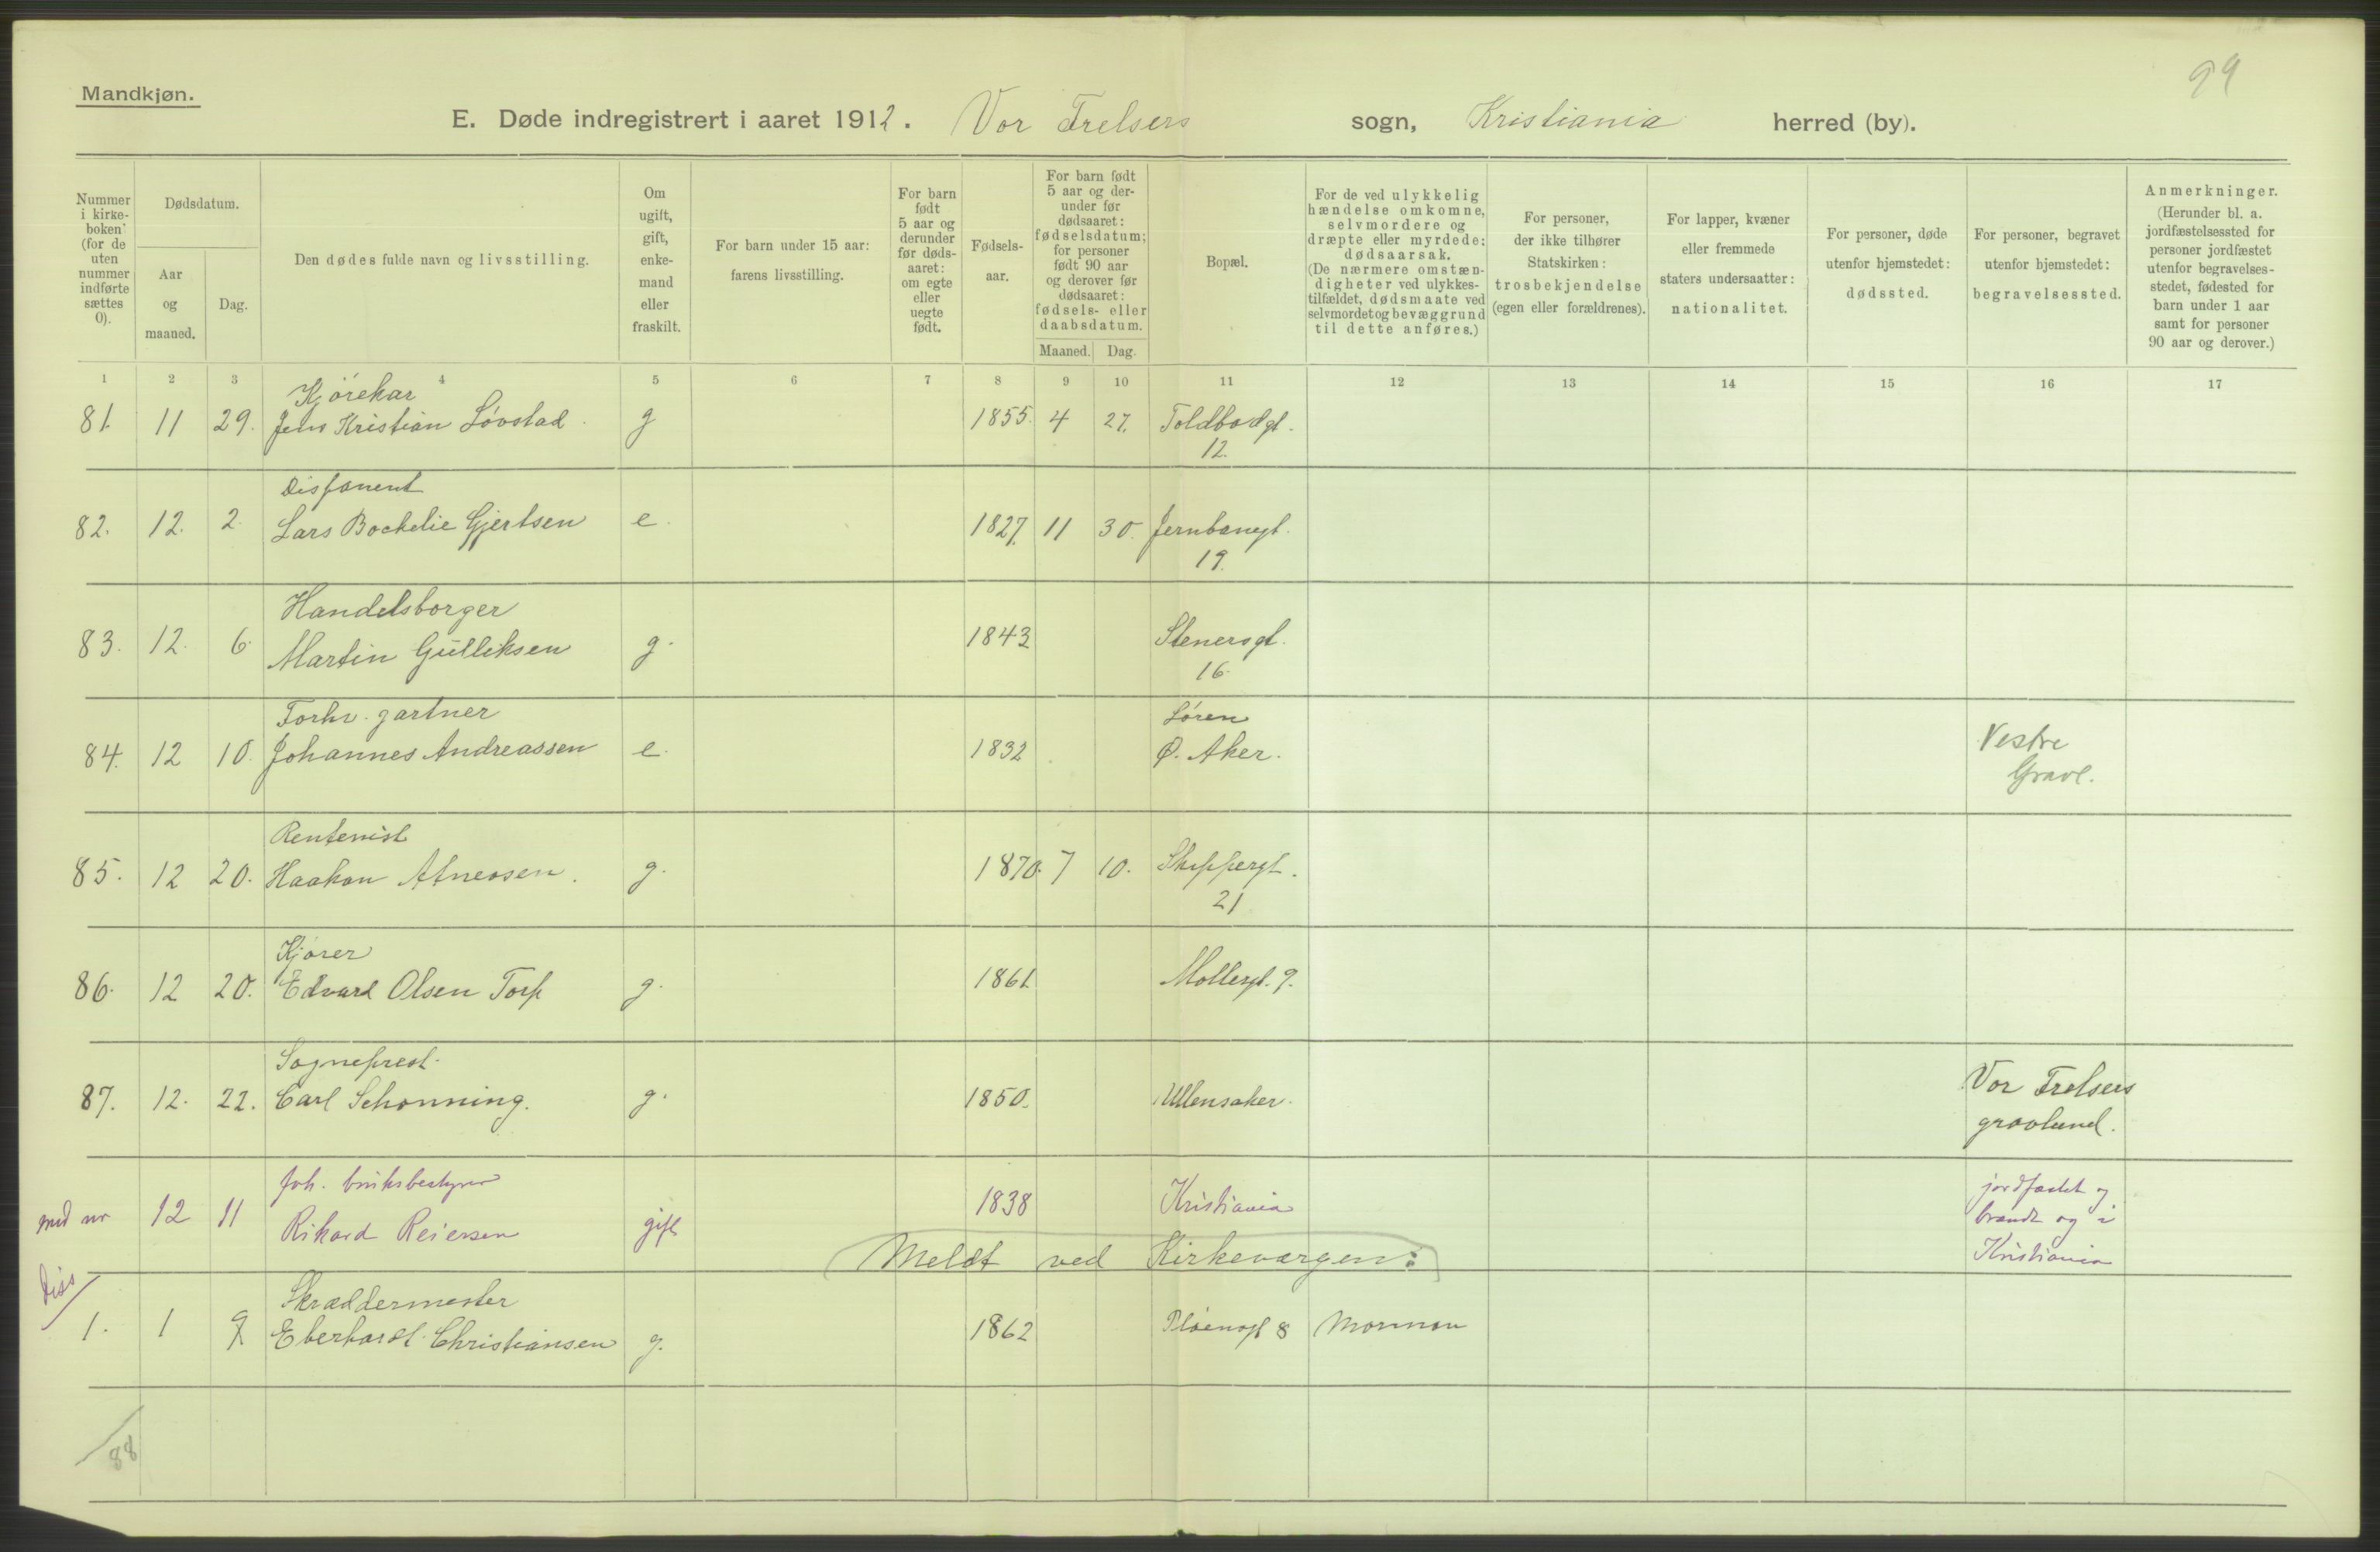 99
Mandkjøn.
E. Døde indregistrert i aaret 1912. Vor Frelsers sogn, Kristiania herred (by).
Nummer i kirke-boken (for de uten nummer indførte sættes 0).
Dødsdatum.
Aar og maaned.
Dag.
Den dødes fulde navn og livsstilling.
Om ugift, gift, enke-mand eller fraskilt.
For barn under 15 aar: farens livsstilling.
For barn født 5 aar og derunder før døds-aaret: om egte eller uegte født.
Fødsels-aar.
For barn født 5 aar og der-under før dødsaaret: fødselsdatum; for personer født 90 aar og derover før dødsaaret: fødsels- eller daabsdatum.
Maaned. Dag.
Bopæl.
For de ved ulykkelig hændelse omkomne, selvmordere og dræpte eller myrdede: dødsaarsak. (De nærmere omstæn-digheter ved ulykkes-tilfældet, dødsmaate ved selvmordet og bevæggrund til dette anføres.)
For personer, der ikke tilhører Statskirken: trosbekjendelse (egen eller forældrenes).
For lapper, kvæner eller fremmede staters undersaatter: nationalitet.
For personer, døde utenfor hjemstedet: dødssted.
For personer, begravet utenfor hjemstedet: begravelsessted.
Anmerkninger. (Herunder bl. a. jordfæstelsessted for personer jordfæstet utenfor begravelses-stedet, fødested for barn under 1 aar samt for personer 90 aar og derover.)
1 2 3 4 5 6 7 8 9 10 11 12 13 14 15 16 17
Kjørekar
81. 11 29. Jens Kristian Løvstad. g 1855. 4 27. Toldbodgt.
12.
Disponent
82. 12. 2. Lars Bockelie Gjertsen e. 1827. 11 30. Jernbanegt.
19.
Handelsborger
83. 12. 6. Martin Gulliksen g. 1843 Stenersgt.
16.
Forhv. gartner Søren
84. 12 10. Johannes Andreassen e. 1832 Ø. Aker. Vestre
Gravl.
Rentenist
85. 12 20. Haakon Atneosen. g. 1870. 7 10. Skippergt.
21
Kjører
86. 12 20. Edvard Olsen Torp g. 1861. Møllergt. 9.
Sogneprest.
87. 12. 22. Carl Schønning. g. 1850. Ullensaker. Vor Frelsers
gravlund.
foh. bruksbestyrer
med nr 12 11 Rikard Reiersen gift 1838 Kristiania jordfæstet og
brændt og i
Kristiania
Meldt ved Kirkeværgen:
Diss
Skræddermester
1. 1 9 Eberhardt Christiansen g. 1862 Pløensgt 8 Mormon
88